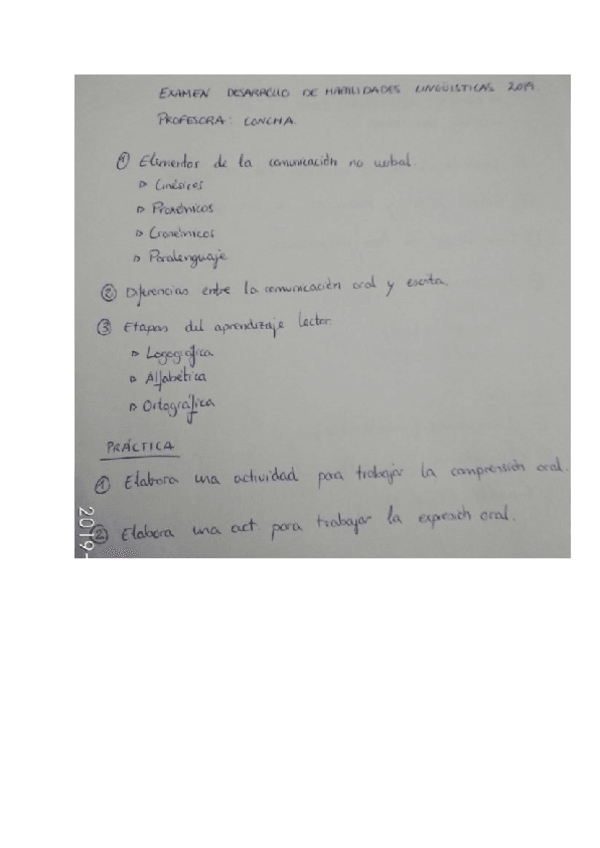 EXAMEN DESARROLLO DE HABILIDADES LINGÜISTICAS 2019.
PROFESORA: CONCHA.
① Elementos de la comunicación no verbal.
▷ Cinésicos
▷ Proxémicos
▷ Cronémicos
▷ Paralenguaje
② Diferencias entre la comunicación oral y escrita.
③ Etapas del aprendizaje lector.
▷ Logográfica
▷ Alfabética
▷ Ortográfica
PRÁCTICA
① Elabora una actividad para trabajar la comprensión oral.
② Elabora una act. para trabajar la expresión oral.
2019-